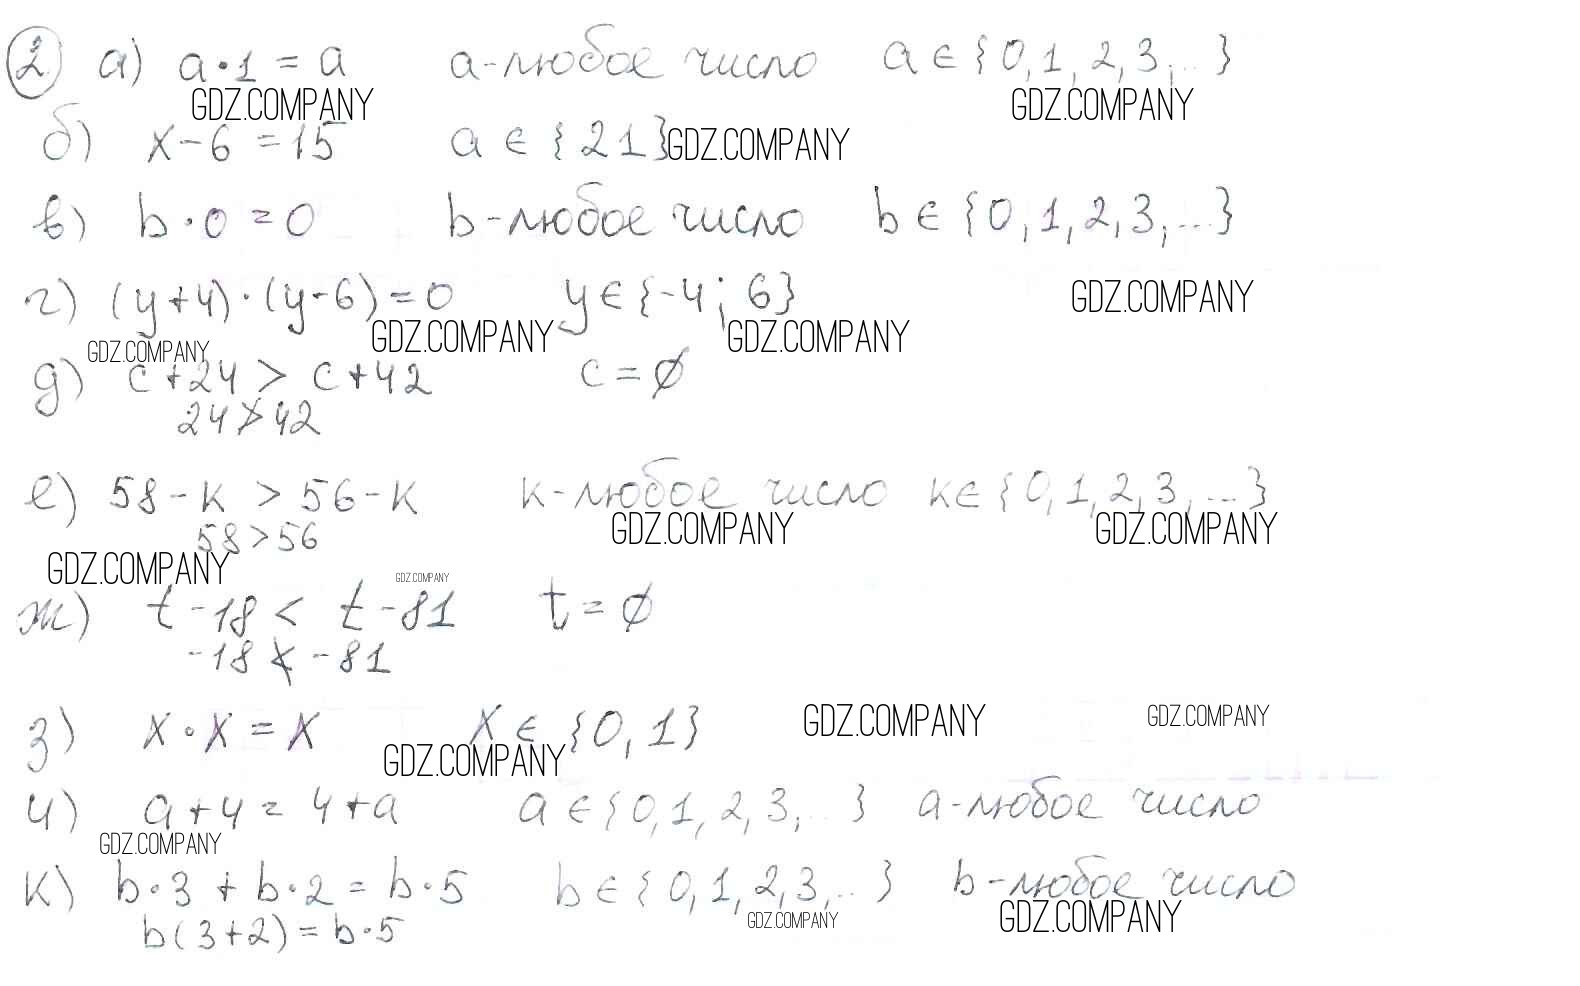 2 а) a·1 = a a-любое число a ∈ {0, 1, 2, 3, ...}
GDZ.COMPANY GDZ.COMPANY
б) x-6 = 15 a ∈ {21} GDZ.COMPANY
в) b·0 = 0 b-любое число b ∈ {0, 1, 2, 3, ...}
г) (y+4)·(y-6) = 0 y ∈ {-4; 6} GDZ.COMPANY
GDZ.COMPANY GDZ.COMPANY GDZ.COMPANY
д) c+24 > c+42 c = ∅
24 ≯ 42
е) 58-k > 56-k k-любое число k ∈ {0, 1, 2, 3, ...}
58 > 56 GDZ.COMPANY GDZ.COMPANY
GDZ.COMPANY GDZ.COMPANY
ж) t-18 < t-81 t = ∅
-18 ≮ -81
з) x·x = x x ∈ {0, 1} GDZ.COMPANY GDZ.COMPANY
GDZ.COMPANY
и) a+4 = 4+a a ∈ {0, 1, 2, 3, ...} a-любое число
GDZ.COMPANY
к) b·3 + b·2 = b·5 b ∈ {0, 1, 2, 3, ...} b-любое число
b(3+2) = b·5 GDZ.COMPANY GDZ.COMPANY